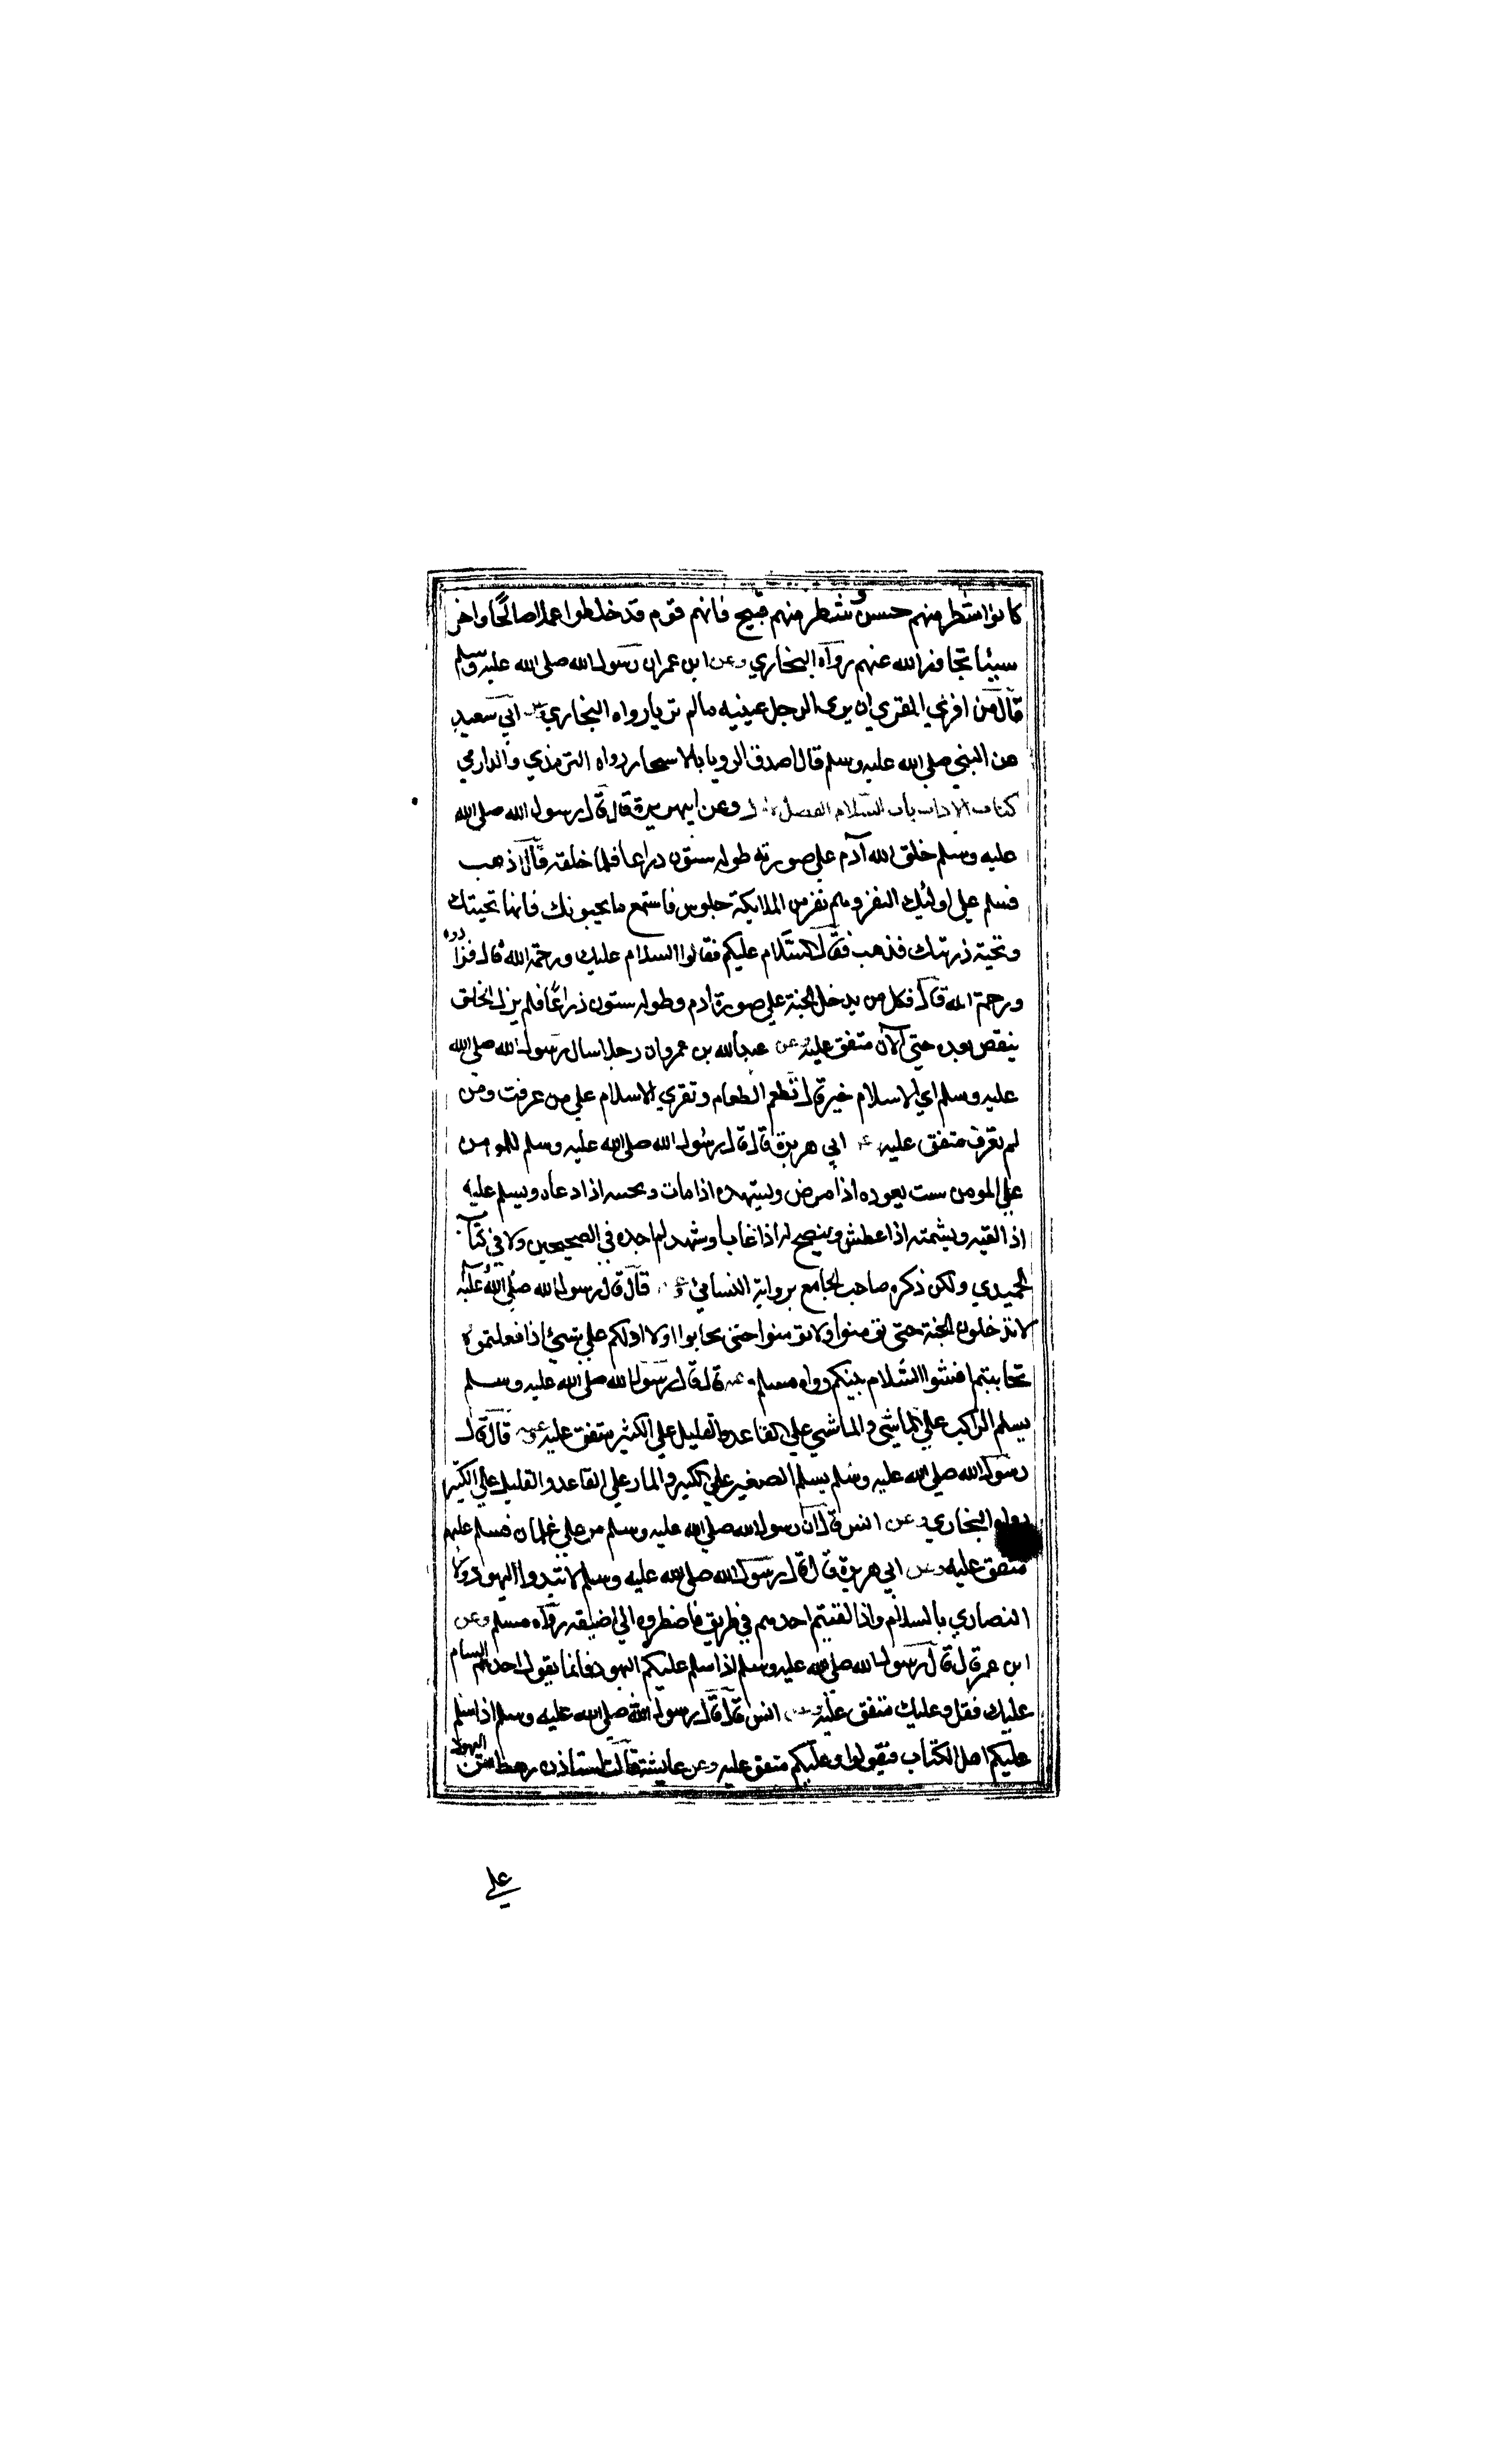 كانوا شطر منهم حسن و شطر منهم قبيح فانهم قوم قد خلطوا عملا صالحًا واخر
سيئا تجاوز الله عنهم رواه البخاري وعن ابن عمر ان رسول الله صلى الله عليه وسلم
قال من افري الفري ان يري الرجل عينيه مالم تريا رواه البخاري وعن ابي سعيد
عن النبي صلى الله عليه وسلم قال اصدق الرويا بالاسحار رواه الترمذي والدارمي
كتاب الاداب باب السلام الفصل الاول وعن ابي هريرة قال قال رسول الله صلى الله
عليه وسلم خلق الله آدم علي صورته طوله ستون ذراعا فلما خلقه قال اذهب
فسلم علي اولئك النفر وهم نفر من الملايكة جلوس فاستمع ما يحيونك فانها تحيتك
وتحية ذريتك فذهب فقال السلام عليكم فقالوا السلام عليك ورحمة الله قال فزادوه
ورحمة الله قال فكل من يدخل الجنة علي صورة آدم وطوله ستون ذراعًا فلم يزل الخلق
ينقص بعده حتي الآن متفق عليه وعن عبد الله بن عمرو ان رجلا سال رسول الله صلى الله
عليه وسلم اي الاسلام خير قال تطعم الطعام وتقري الاسلام علي من عرفت ومن
لم تعرف متفق عليه وعن ابي هريرة قال قال رسول الله صلى الله عليه وسلم للمومن
علي المومن ست يعوده اذا مرض ويشهده اذا مات ويجيبه اذا دعاه ويسلم عليه
اذا لقيه ويشمته اذا عطش وينصح له اذا غاب او شهد لم اجده في الصحيحين ولا في كتاب
الحميدي ولكن ذكره صاحب الجامع برواية النسائي وعنه قال قال رسول الله صلى الله عليه
لا تدخلون الجنة حتي تومنوا ولا تومنوا حتي تحابوا اولا ادلكم علي شيئ اذا فعلتموه
تحاببتم افشوا السلام بينكم رواه مسلم وعنه قال قال رسول الله صلى الله عليه وسلم
يسلم الراكب علي الماشي والماشي علي القاعد والقليل علي الكثير متفق عليه وعنه قال قال
رسول الله صلى الله عليه وسلم يسلم الصغير علي الكبير والمار علي القاعد والقليل علي الكثير
رواه البخاري وعن انس قال ان رسول الله صلى الله عليه وسلم مر علي غلمان فسلم عليهم
متفق عليه وعن ابي هريرة قال قال رسول الله صلى الله عليه وسلم لا تبدوا اليهود ولا
النصاري بالسلام واذا لقيتم احدهم في طريق فاضطروه الي اضيقه رواه مسلم وعن
ابن عمر قال قال رسول الله صلى الله عليه وسلم اذا سلم عليكم اليهود فانما يقول احدهم السام
عليك فقل وعليك متفق عليه وعن انس قال قال رسول الله صلى الله عليه وسلم اذا سلم
عليكم اهل الكتاب فقولوا وعليكم متفق عليه وعن عايشة قالت استاذن رهط من اليهود
علي